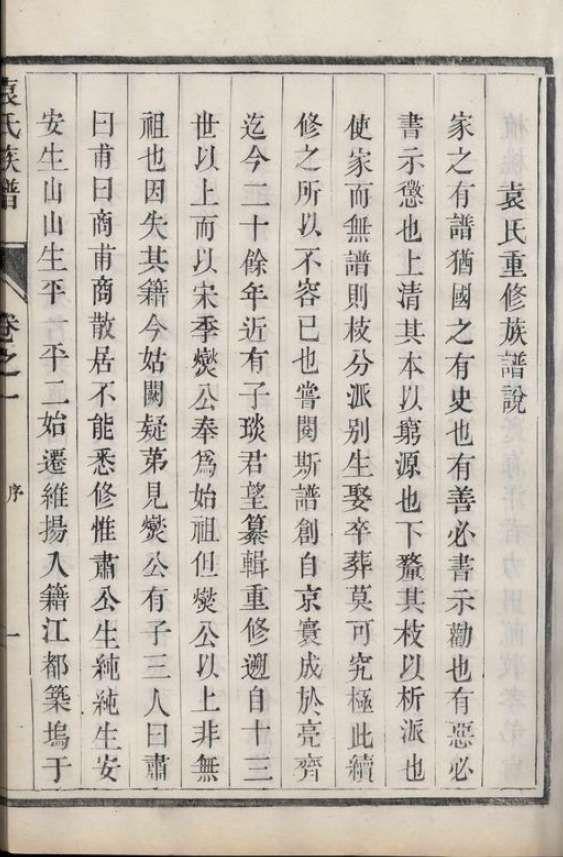 袁氏重修族譜說
家之有譜猶國之有史也有善必書示勸也有惡必
書示懲也上清其本以窮源也下釐其枝以析派也
使家而無譜則枝分派别生娶卒葬莫可究極此續
修之所以不容已也嘗閱斯譜創自京寰成於亮齊
迄今二十餘年近有子琰君望纂輯重修遡自十三
世以上而以宋季爕公奉爲始祖但爕公以上非無
祖也因失其籍今姑闕疑苐見爕公有子三人曰肅
曰甫曰商甫商散居不能悉修惟肅公生純純生安
安生山山生平一平二始遷維揚入籍江都築塢于
袁氏族譜
卷之一
序
一